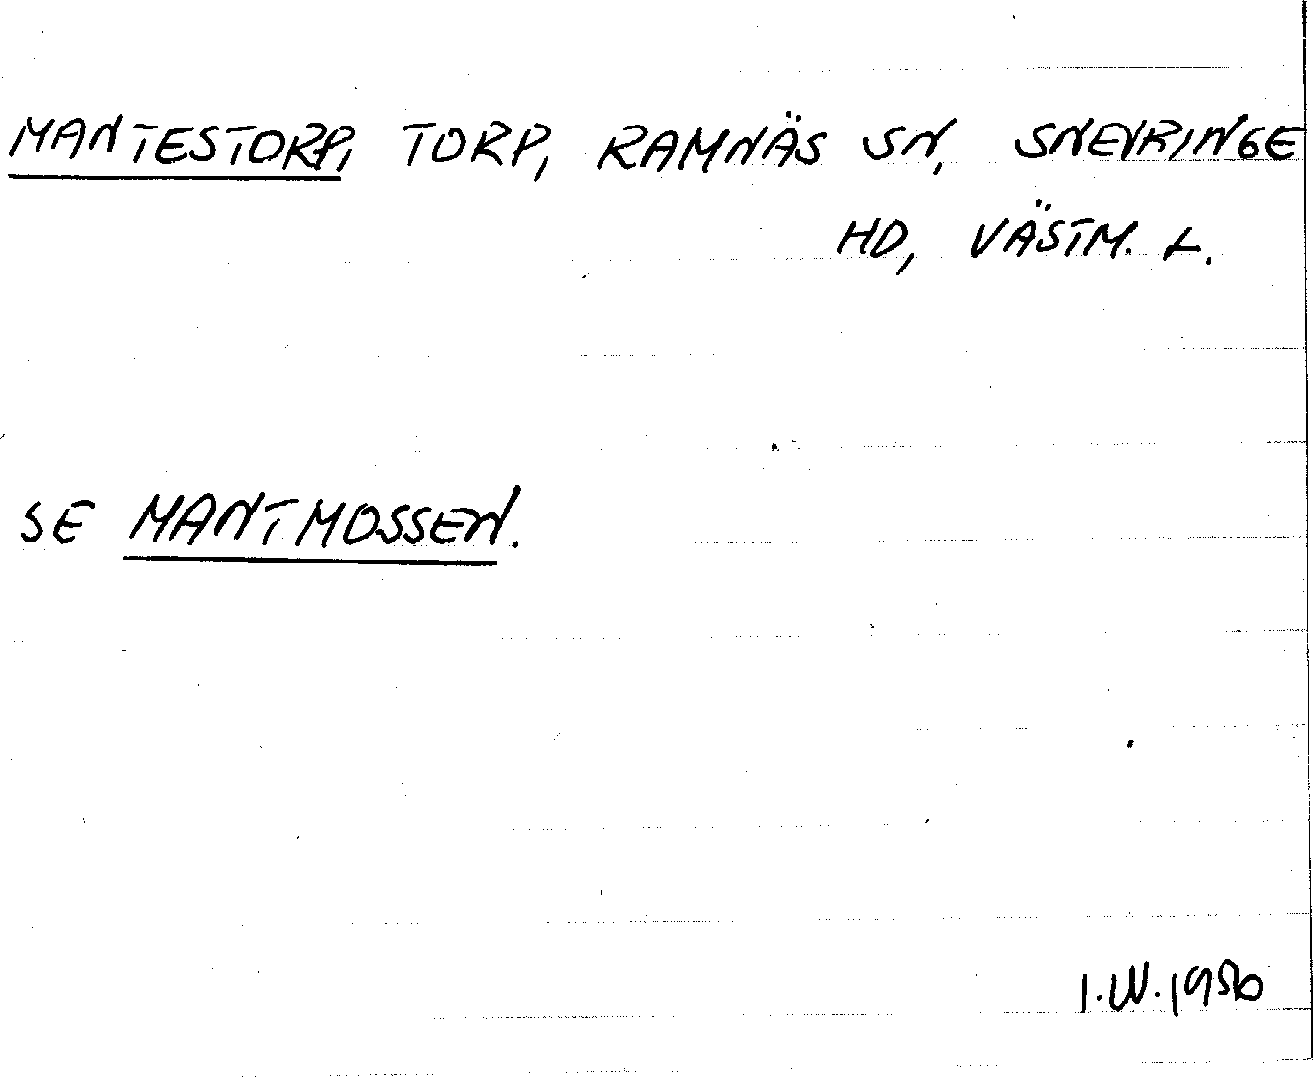 MANTESTORP, TORP, RAMNÄS SN, SNEVRINGE
HD, VÄSTM. L.
SE MANTMOSSEN.
I.W. 1986